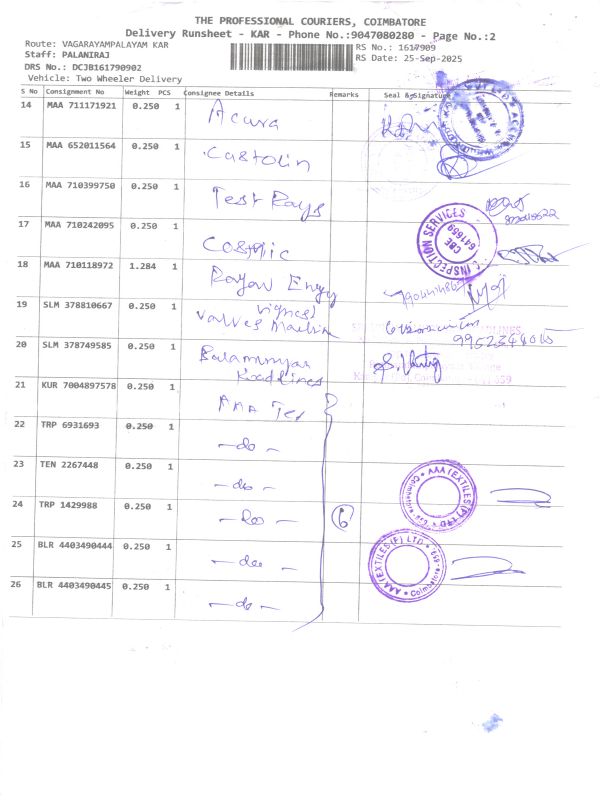 THE PROFESSIONAL COURIERS, COIMBATORE
Delivery Runsheet - KAR - Phone No.:9047080280 - Page No.:2
Route: VAGARAYAMPALAYAM KAR
RS No.: 1617909
Staff: PALANIRAJ
RS Date: 25-Sep-2025
DRS No.: DCJB161790902
Vehicle: Two Wheeler Delivery
S No Consignment No Weight PCS Consignee Details Remarks Seal & Signature
14 MAA 711171921 0.250 1 Acura
15 MAA 652011564 0.250 1 Castolin
16 MAA 710399750 0.250 1 Test Rays
17 MAA 710242095 0.250 1 Cosmic
INSPECTION SERVICES
CBE
641659
18 MAA 710118972 1.284 1 Rayan Engg
19 SLM 378810667 0.250 1
Valves Machine
20 SLM 378749585 0.250 1
21 KUR 7004897578 0.250 1 AAA Tex
22 TRP 6931693 0.250 1 -do-
23 TEN 2267448 0.250 1 -do-
24 TRP 1429988 0.250 1 -do- 6
AAA TEXTILES (P) LTD
25 BLR 4403490444 0.250 1 -do-
AAA TEXTILES (P) LTD
Coimbatore-659
26 BLR 4403490445 0.250 1 -do-